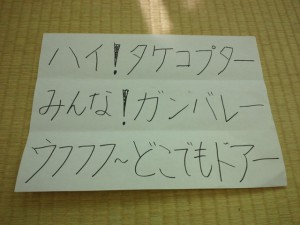 ハイ!タケコプター
みんな!ガンバレー
ウフフフ～どこでもドアー